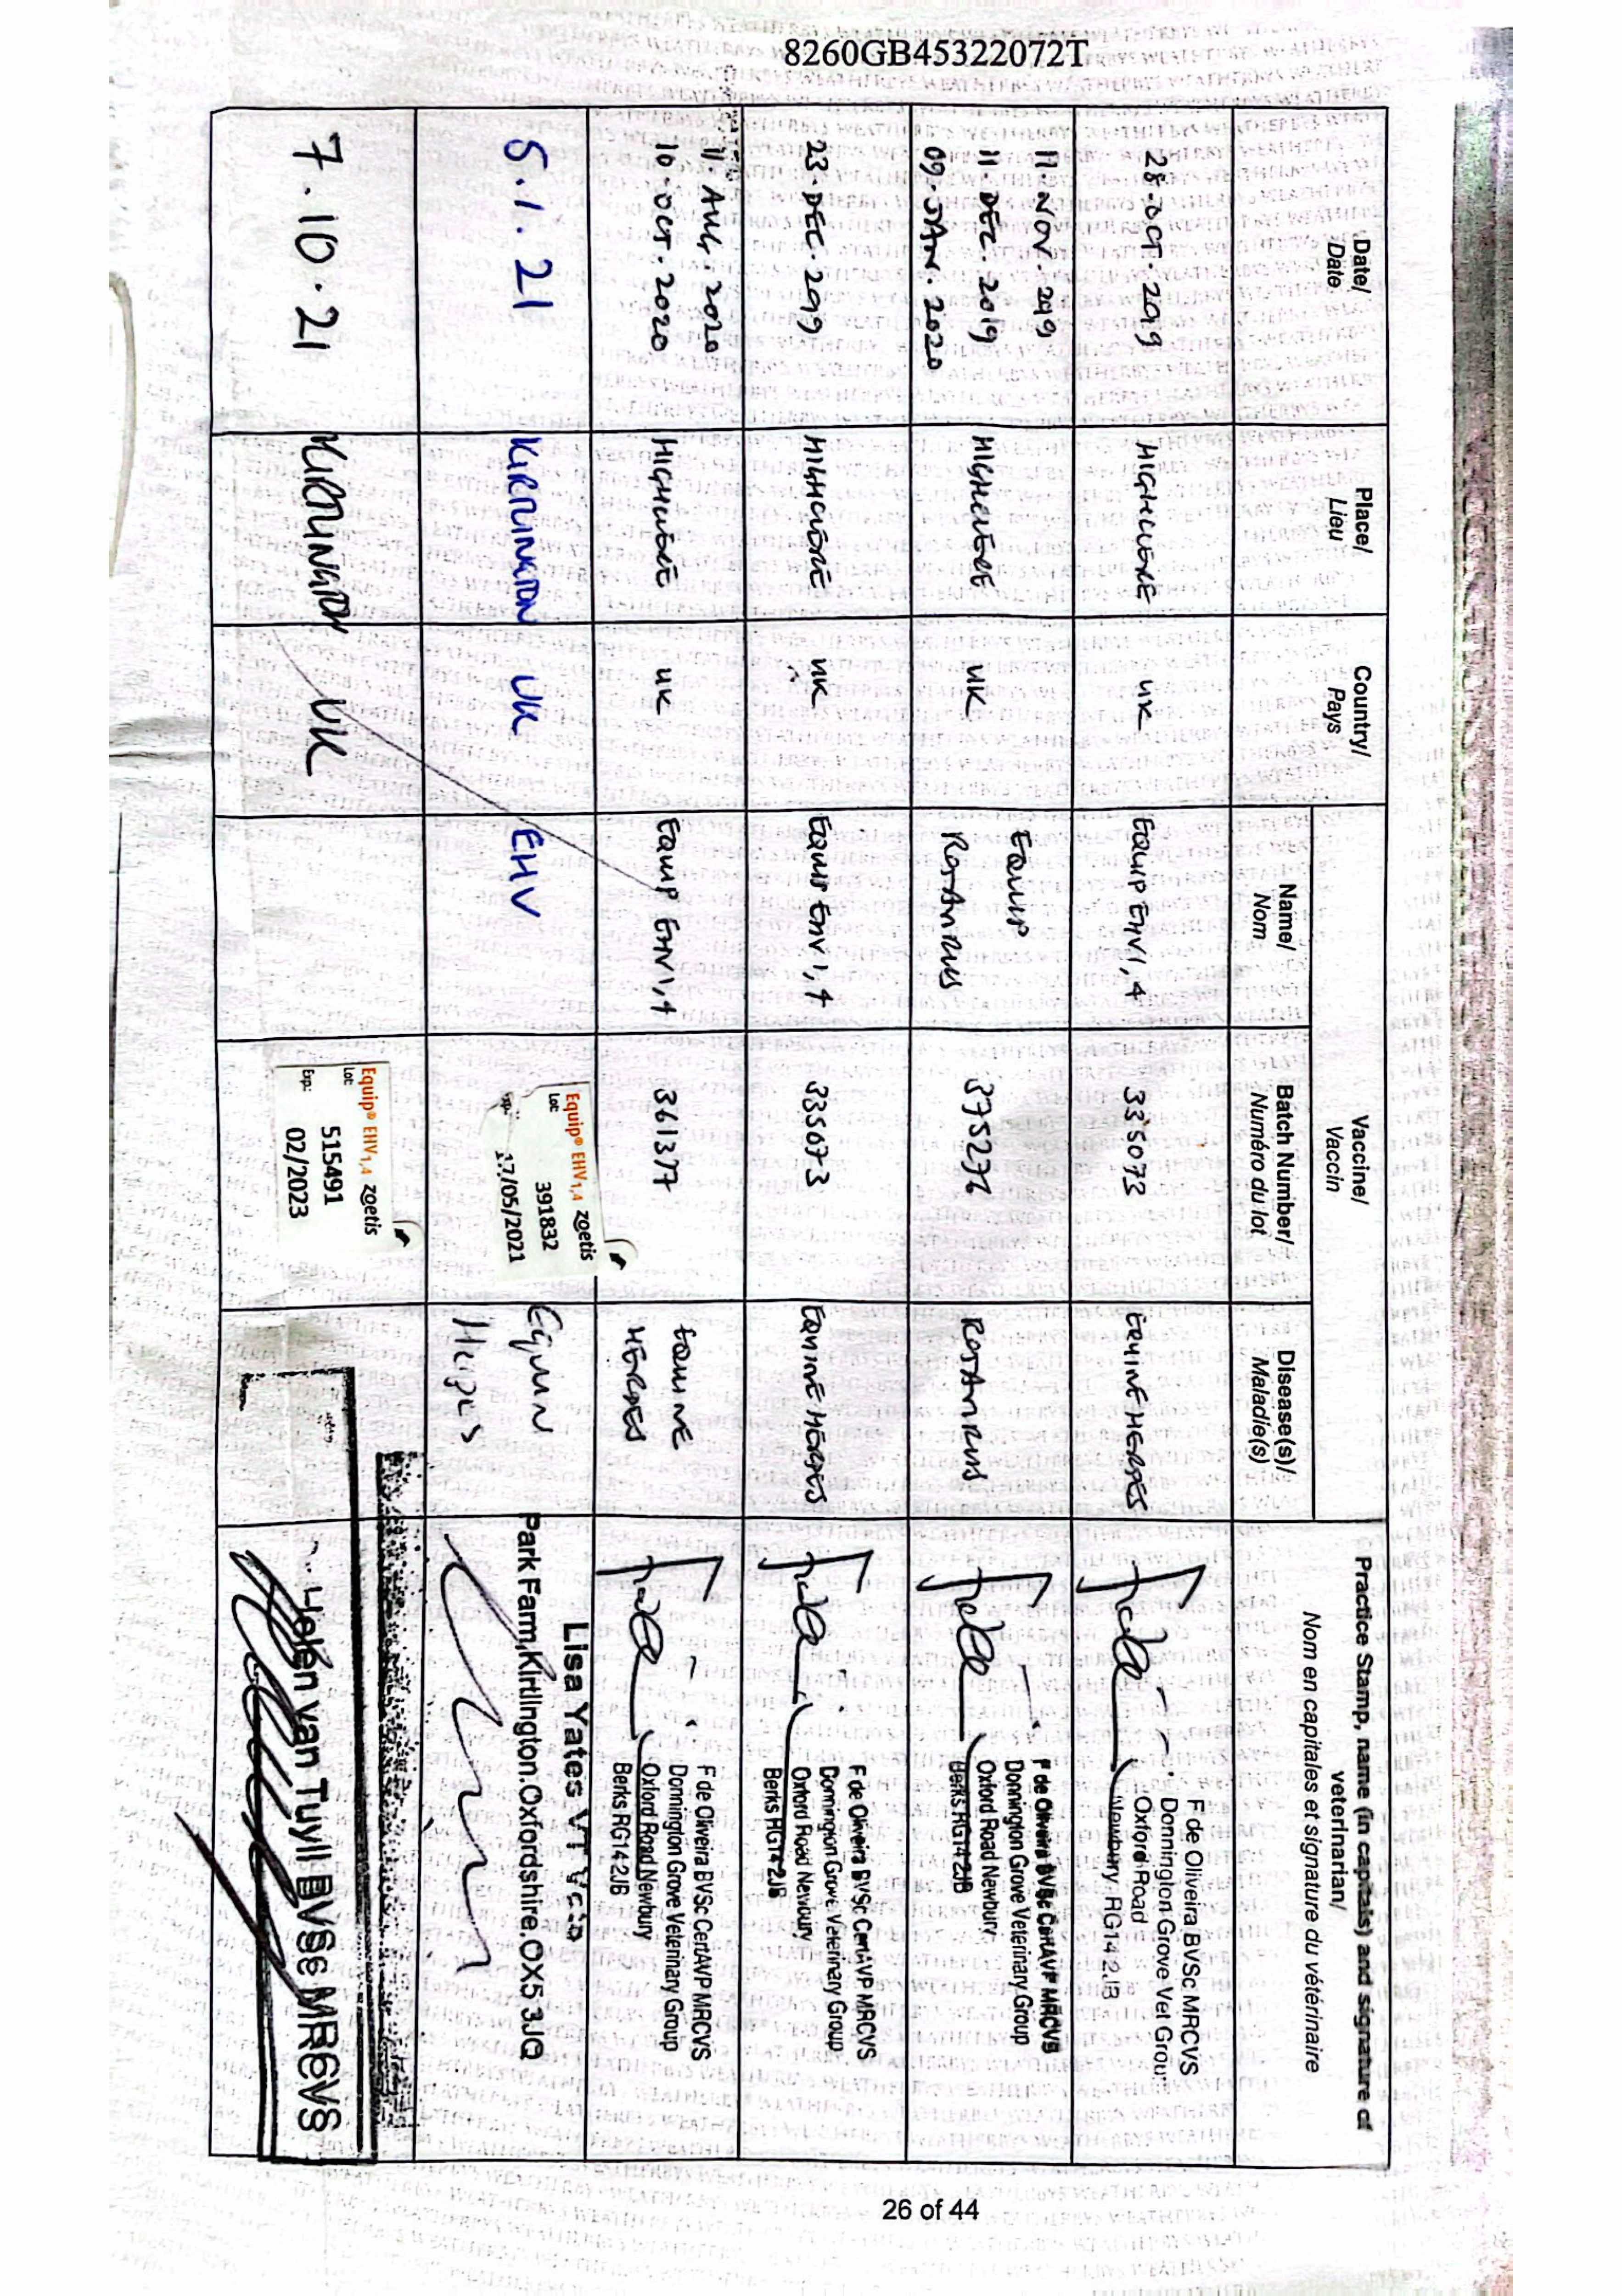 8260GB45322072T
Date/ Date
Place/ Lieu
Country/ Pays
Vaccine/ Vaccin
Name/ Nom
Batch Number/ Numéro du lot
Disease(s)/ Maladie(s)
Practice Stamp, name (in capitals) and signature of veterinarian/
Nom en capitales et signature du vétérinaire
28·OCT·2019
HIGHCLERE
UK
EQUIP EHV1,4
335073
EQUINE HERPES
F de Oliveira BVSc MRCVS
Donnington Grove Vet Grou
Oxford Road
Newbury RG14 2JB
11·NOV·2019
11·DEC·2019
09·JAN·2020
HIGHCLERE
UK
EQUIP
ROTAVIRUS
375276
ROTAVIRUS
F de Oliveira BVSc CertAVP MRCVS
Donnington Grove Veterinary Group
Oxford Road Newbury
Berks RG14 2JB
23·DEC·2019
HIGHCLERE
UK
EQUIP EHV1,4
335073
EQUINE HERPES
F de Oliveira BVSc CertAVP MRCVS
Donnington Grove Veterinary Group
Oxford Road Newbury
Berks RG14 2JB
11·AUG·2020
10·OCT·2020
HIGHCLERE
UK
EQUIP EHV1,4
361377
EQUINE
HERPES
F de Oliveira BVSc CertAVP MRCVS
Donnington Grove Veterinary Group
Oxford Road Newbury
Berks RG14 2JB
5.1.21
KIRTLINGTON
UK
EHV
Equip® EHV1,4 zoetis
Lot: 391832
Exp.: 17/05/2021
Equin
Herpes
Lisa Yates VT
Park Farm,Kirtlington.Oxfordshire.OX5 3JQ
7.10.21
KIRTLINGTON
UK
Equip® EHV1,4 zoetis
Lot: 515491
Exp.: 02/2023
Helen van Tuyll BVSc MRCVS
26 of 44